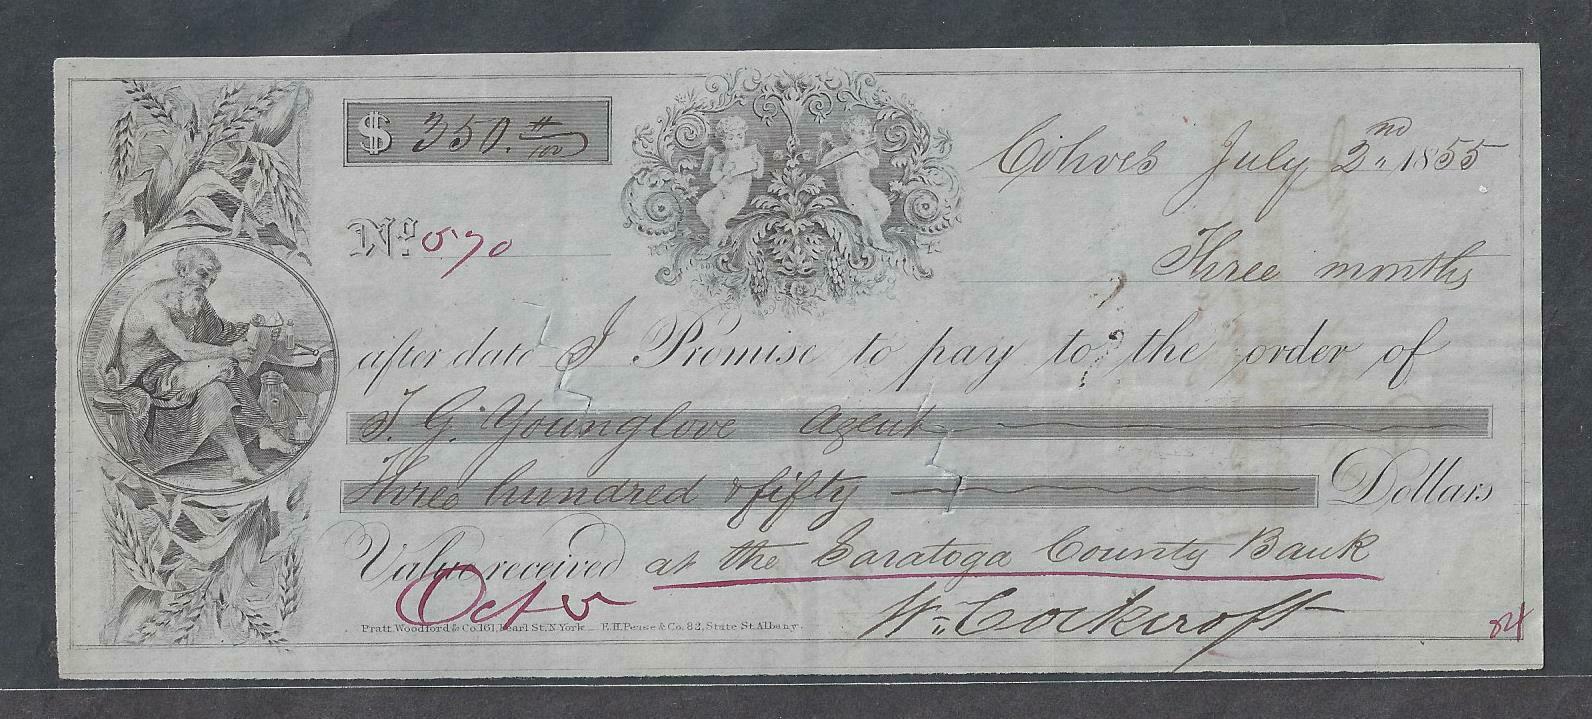 $ 350. #/100
Cohoes July 2nd 1855
No. 570
Three months
after date I Promise to pay to the order of
T. G. Younglove Agent
Three hundred & fifty Dollars
Value received at the Saratoga County Bank
Oct 5
Wm. Cockcroft
Pratt, Woodford & Co. 161, Pearl St, N. York E.H. Pease & Co. 82, State St. Albany.